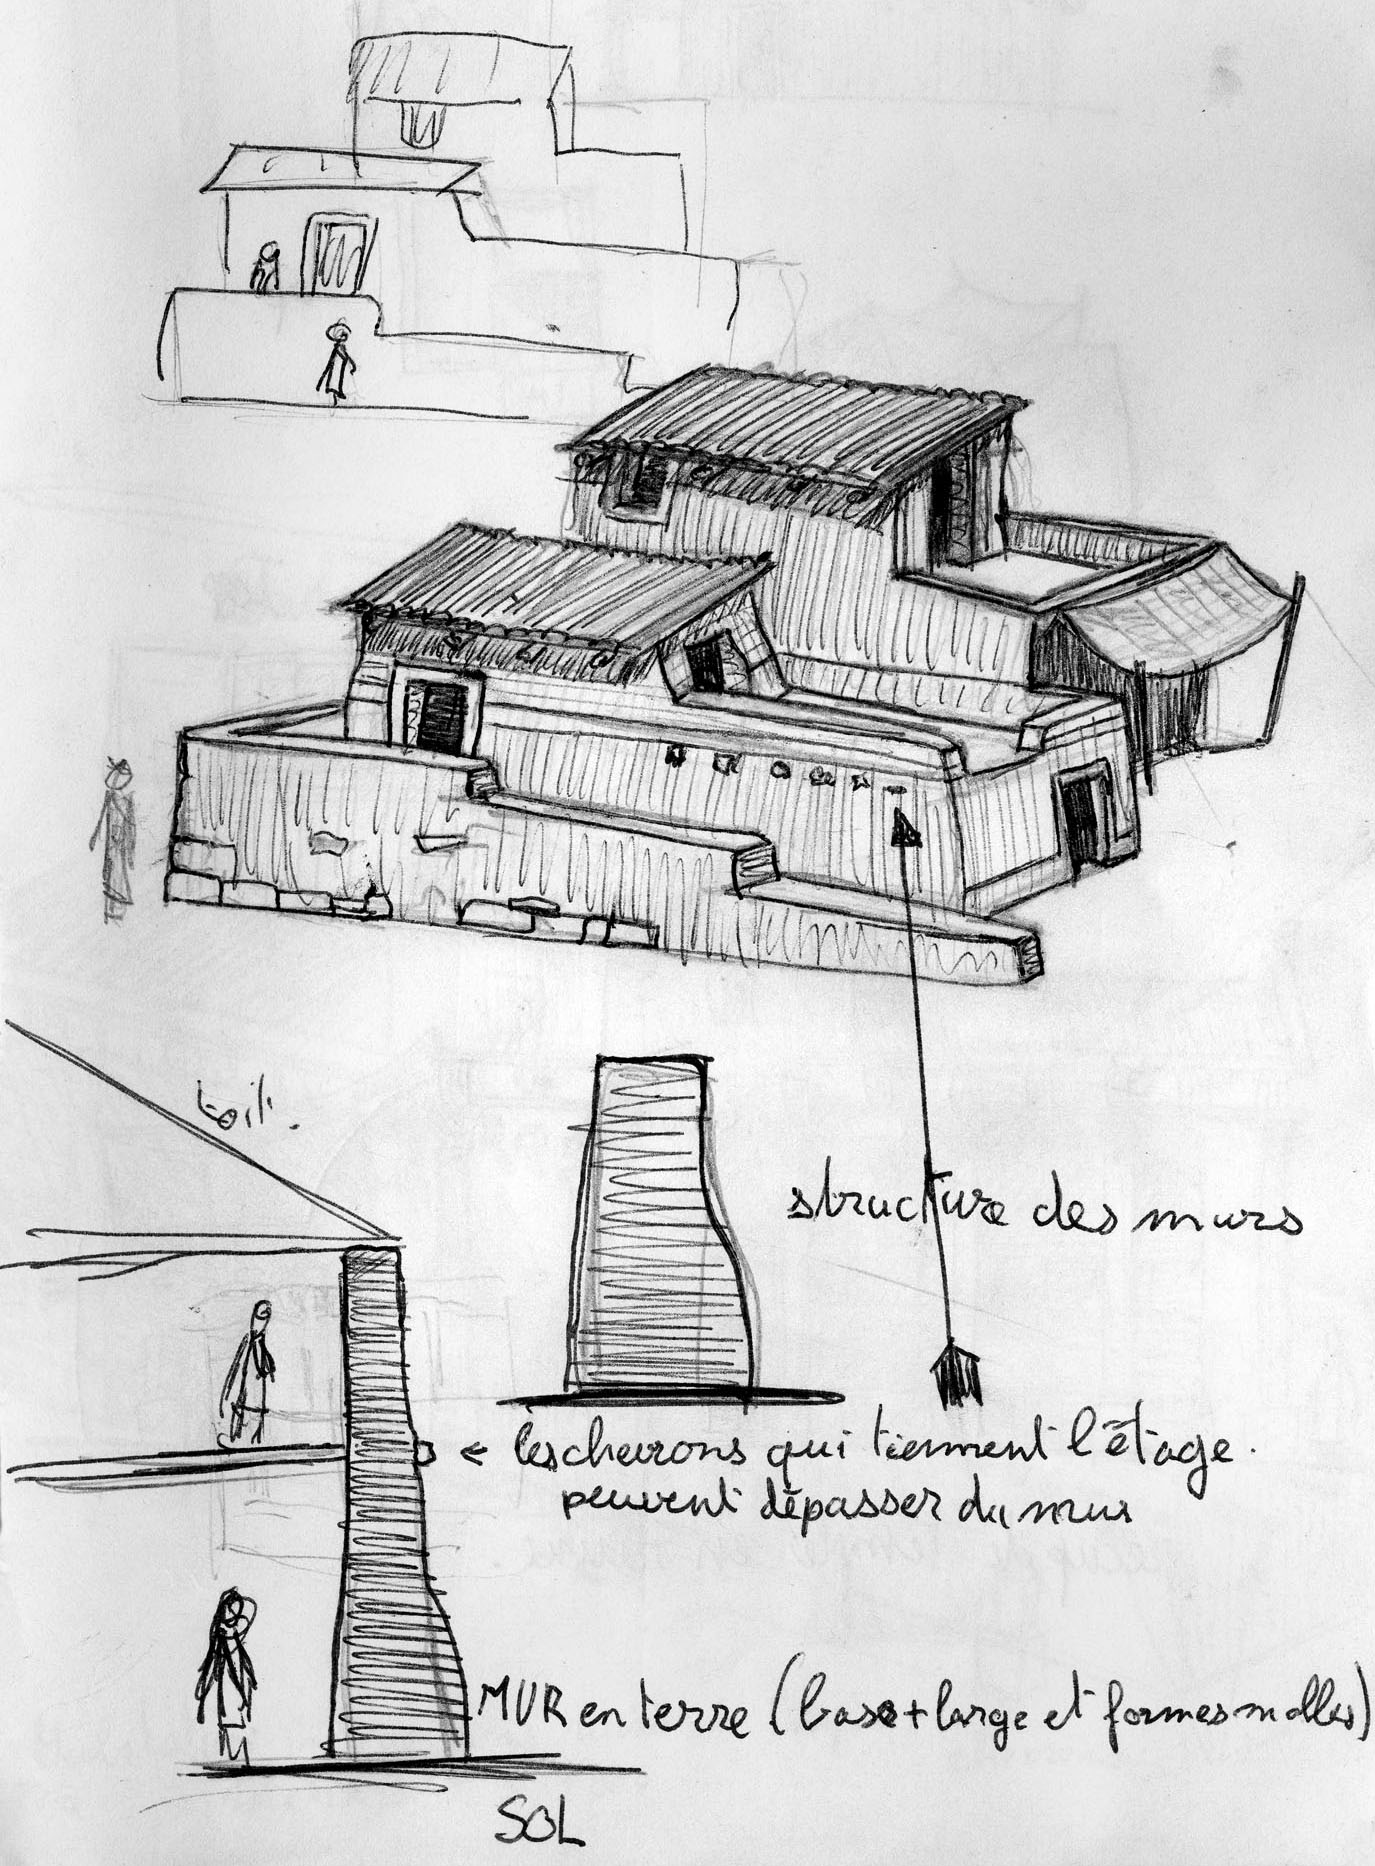 toit.
structure des murs
← les chevrons qui tiennent l'étage.
peuvent dépasser du mur
MUR en terre (base + large et formes molles)
SOL